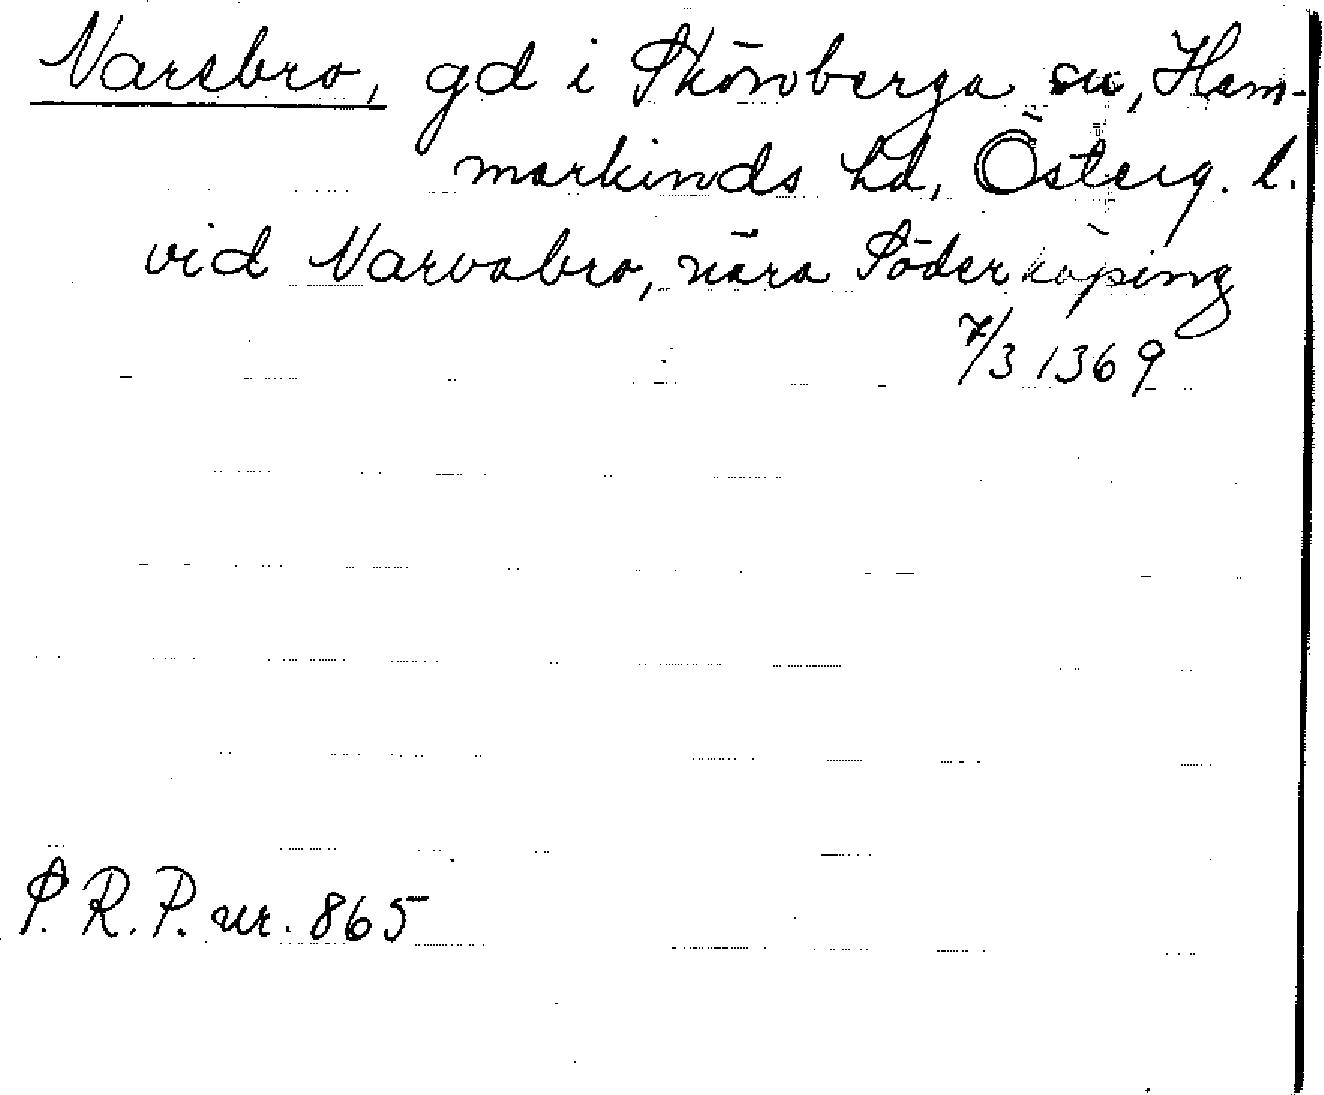 Narsbro, gd i Skönberga sn, Ham-
markinds hd, Österg. l.
vid Narvabro, nära Söderköping
7/3 1369
S. R. P. nr. 865